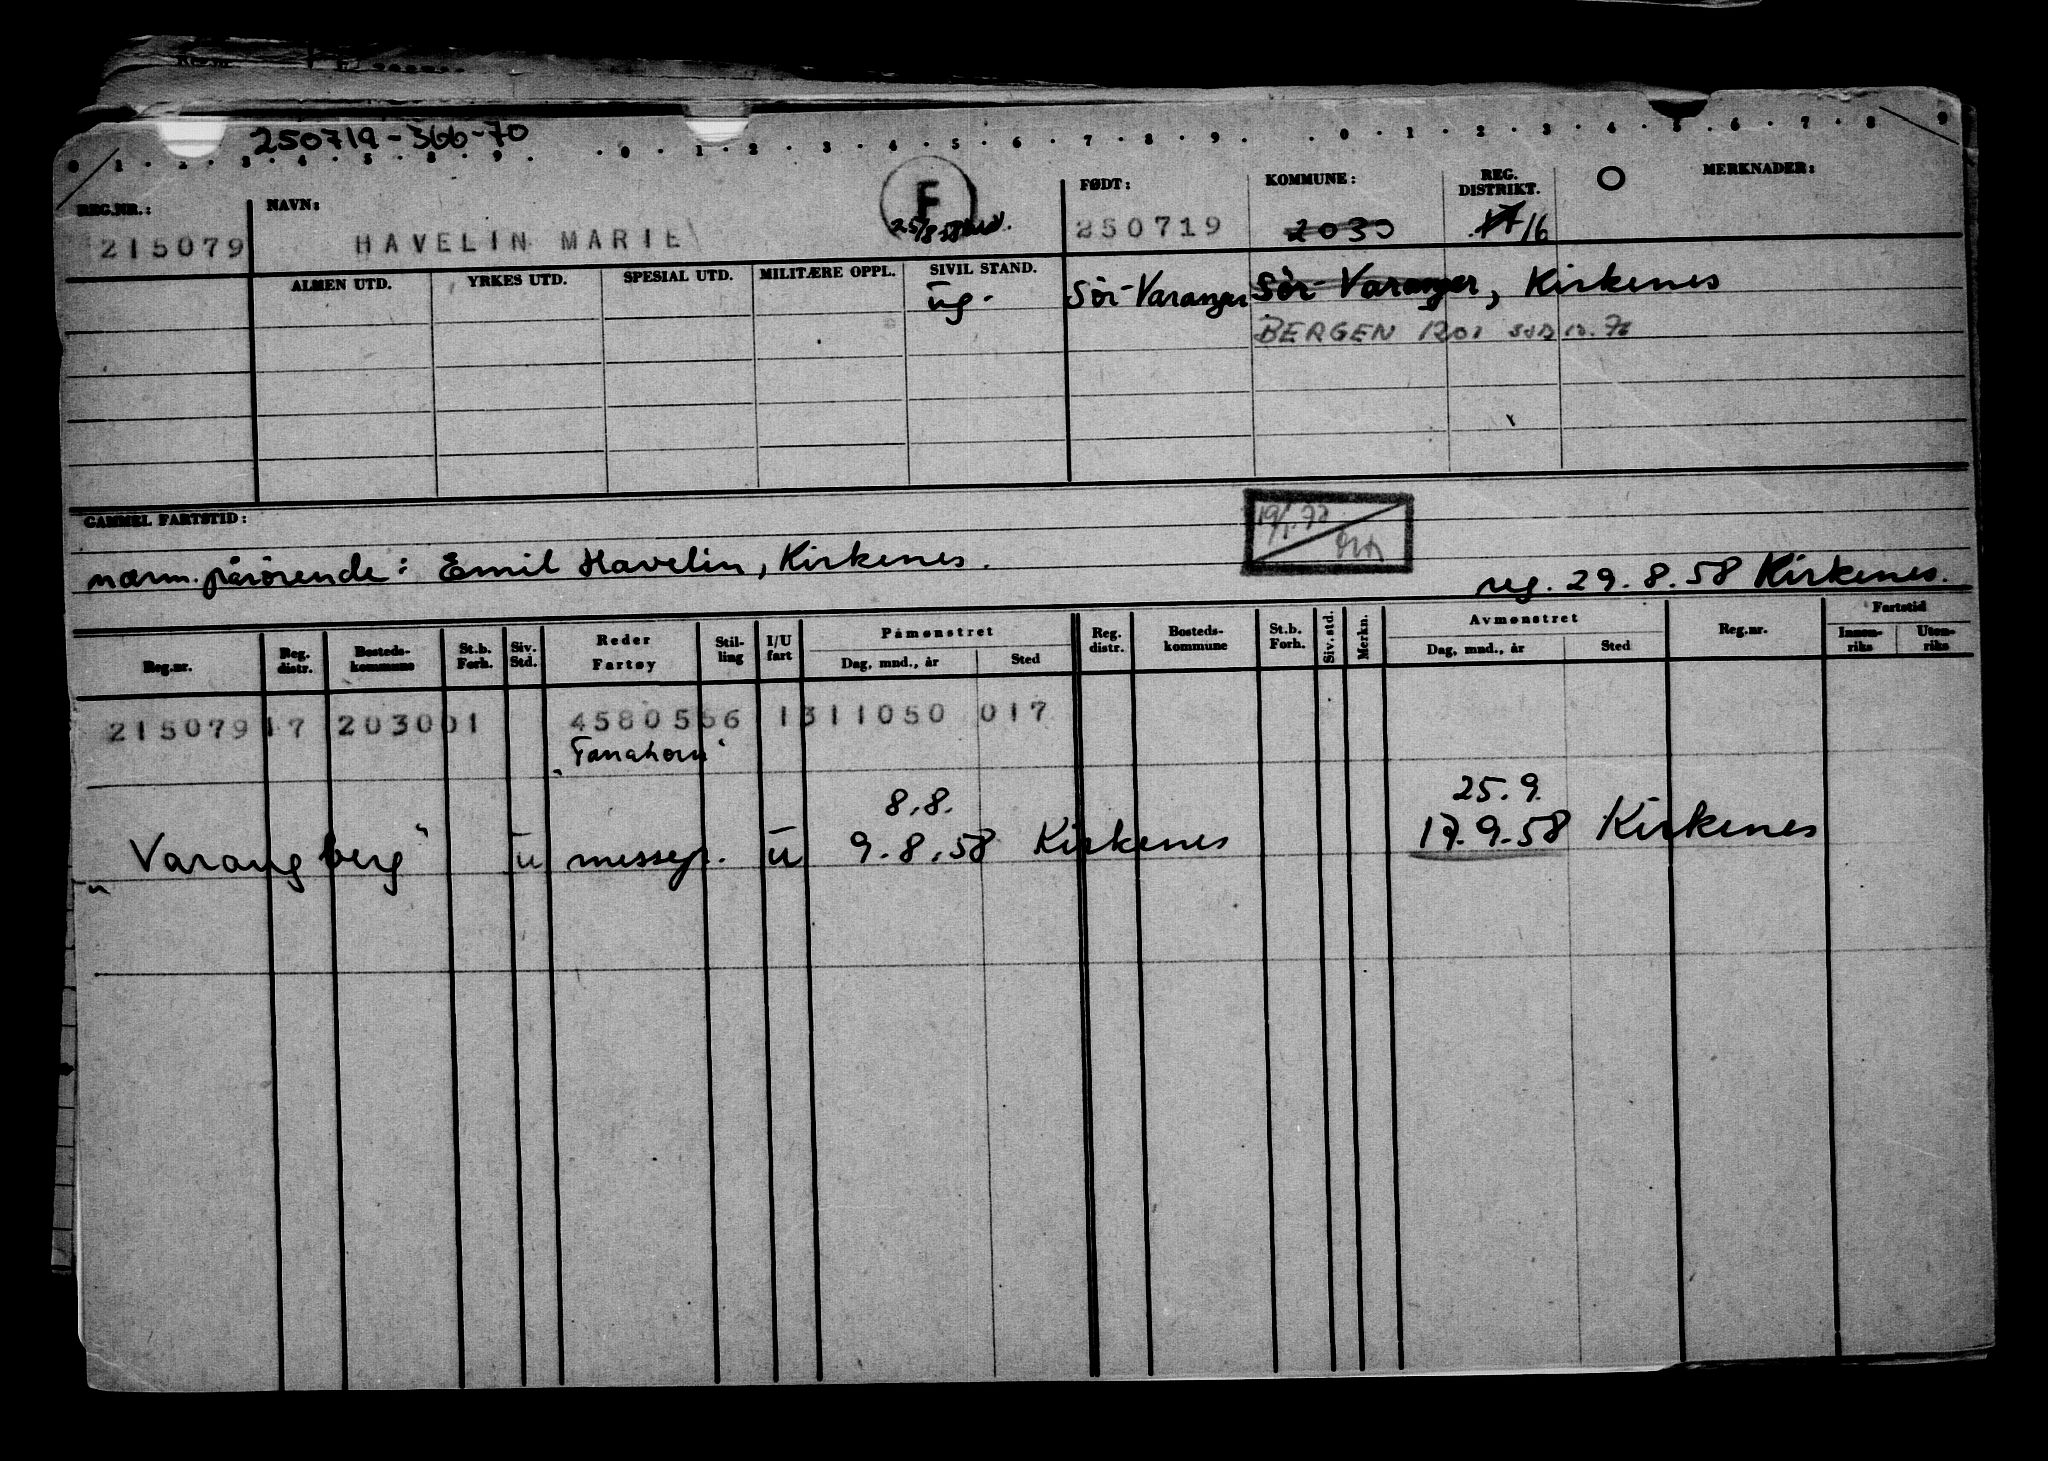 250719-366-70
0 1 2 3 4 5 8 9 0 1 2 3 4 5 6 7 8 9 0 1 2 3 4 5 6 7 8 9
REG.NR.: NAVN: F FØDT: KOMMUNE: REG. DISTRIKT. MERKNADER:
215079 HAVELIN MARIE 25/8.58 250719 2030 17 16
ALMEN UTD. YRKES UTD. SPESIAL UTD. MILITÆRE OPPL. SIVIL STAND.
ug. Sör-Varanger Sör-Varanger, Kirkenes
BERGEN 1201
GAMMEL FARTSTID:
19/1.72
nærm. pårörende: Emil Havelin, Kirkenes.
reg. 29.8.58 Kirkenes.
Reg.nr. Reg. distr. Bosteds-kommune St.b. Forh. Siv. Std. Reder Fartøy Stil-ling I/U fart Påmønstret Dag, mnd., år Sted Reg. distr. Bosteds-kommune St.b. Forh. Siv. std. Merkn. Avmønstret Dag, mnd., år Sted Reg.nr. Fartstid Innen-riks Uten-riks
215079 17 203001 4580566 1311050 017
"Tanahorn"
8.8. 25.9.
"Varangberg" u messep. u 9.8.58 Kirkenes 17.9.58 Kirkenes